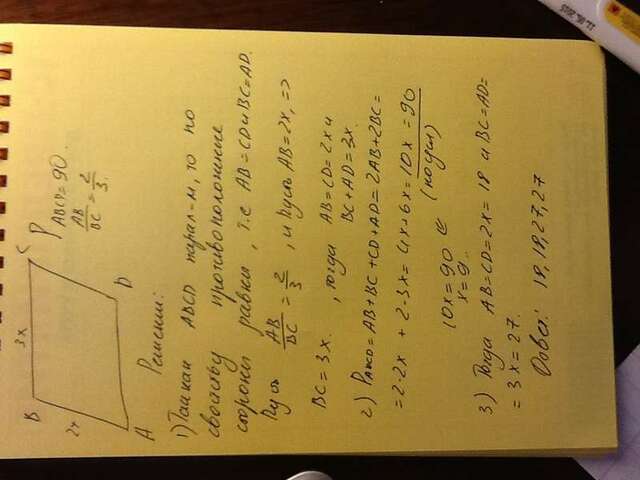 B 3x C
2x
A D
P ABCD = 90.
AB/BC = 2/3.
Решение:
1) Так как ABCD парал-м, то по
свойству противоположные
стороны равны, т.е AB=CD и BC=AD.
Пусть AB/BC = 2/3, и пусть AB=2x, =>
BC=3x. , тогда AB=CD=2x и
BC+AD=3x.
2) PABCD=AB+BC+CD+AD=2AB+2BC=
=2·2x+2·3x=4x+6x=10x=90
10x=90
x=9.
3) Тогда AB=CD=2x=18 и BC=AD=
=3x=27.
Ответ: 18,18,27,27